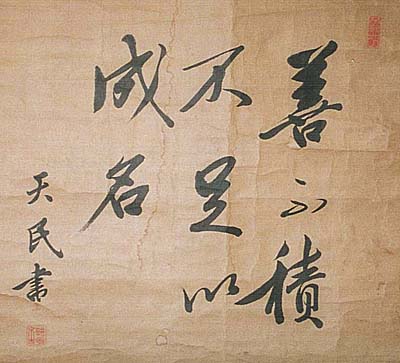 善不積
不足以
成名
天民書